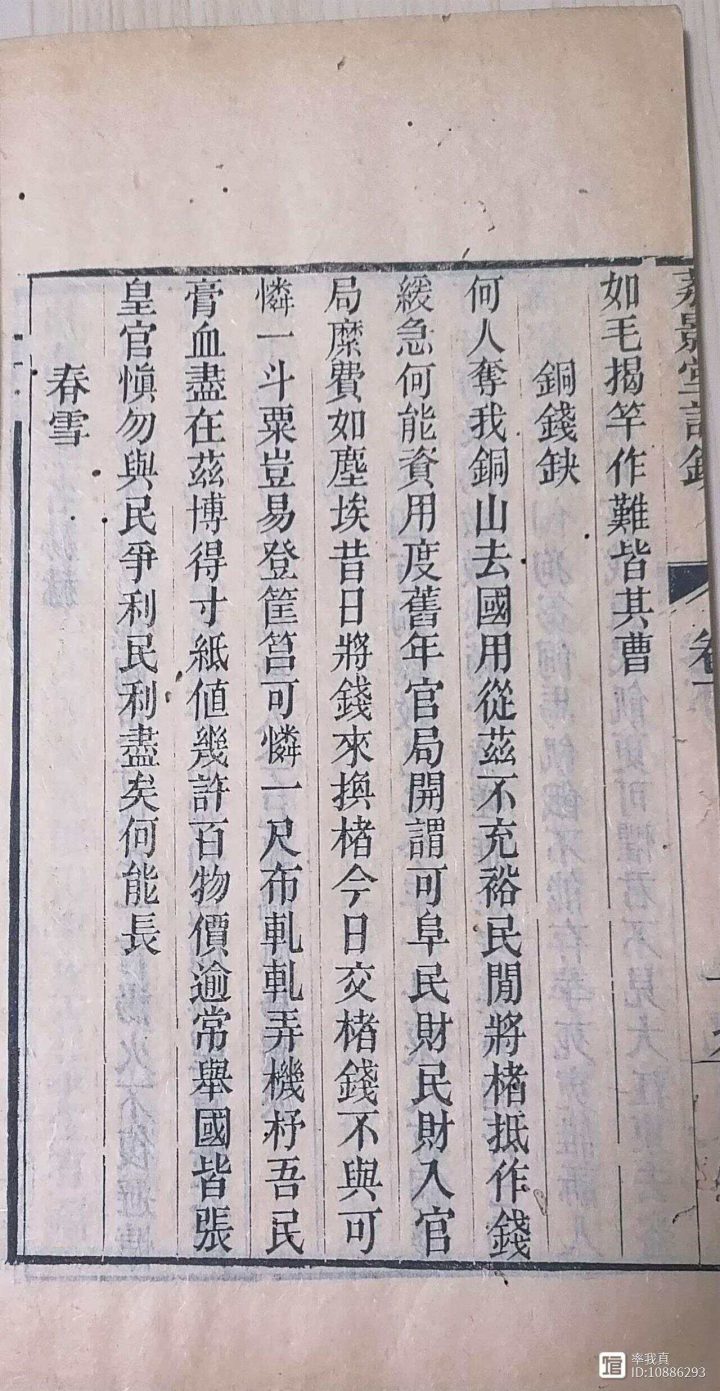 景堂詩鈔 卷下
如毛揭竿作難皆其曹
銅錢缺
何人奪我銅山去國用從茲不充裕民閒將楮抵作錢
緩急何能資用度舊年官局開謂可阜民財民財入官
局糜費如塵埃昔日將錢來換楮今日交楮錢不與可
憐一斗粟豈易登筐筥可憐一尺布軋軋弄機杼吾民
膏血盡在茲博得寸紙值幾許百物價逾常舉國皆張
皇官愼勿與民爭利民利盡矣何能長
春雪
率我真
ID:10886293